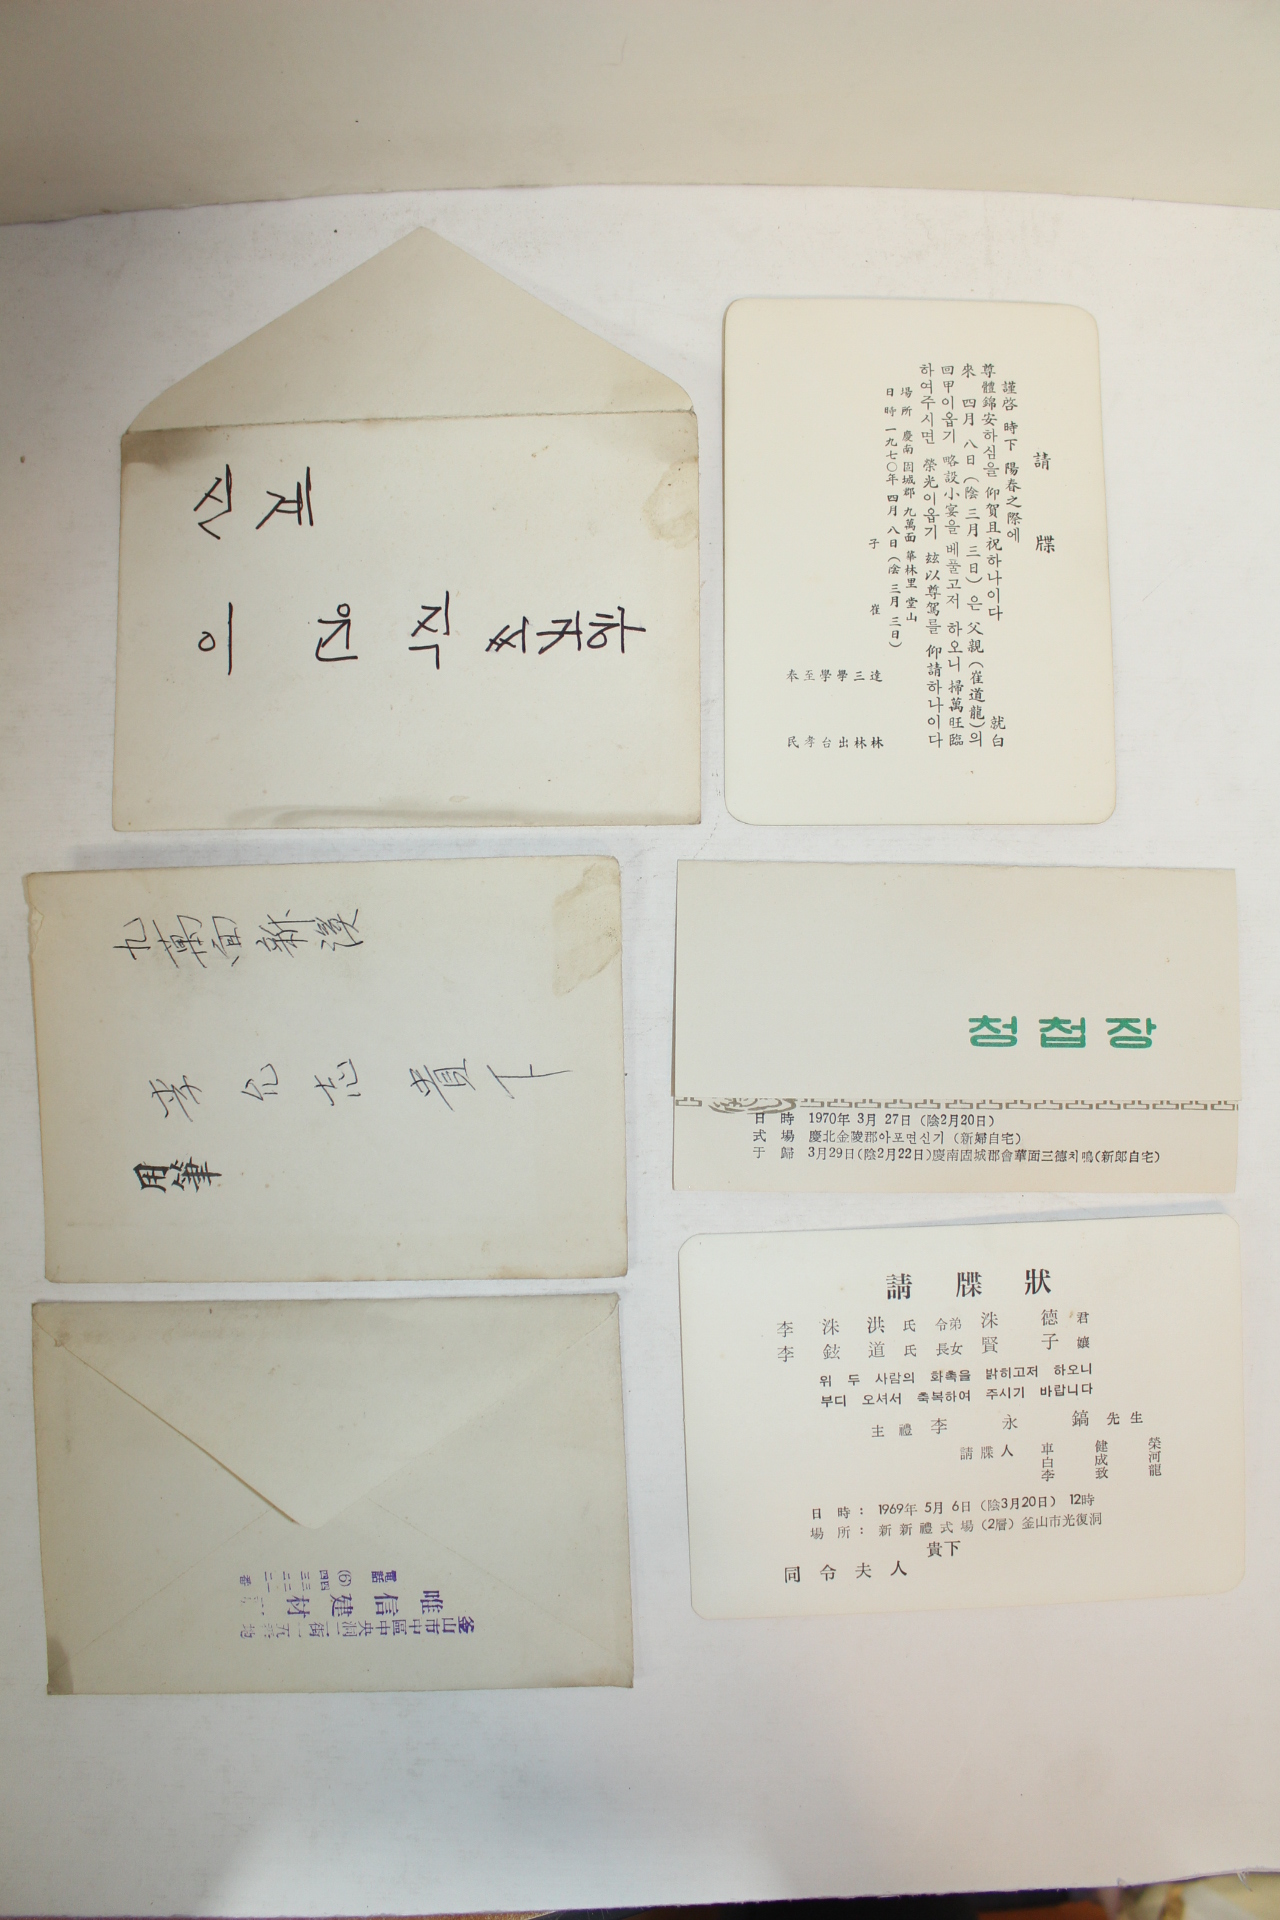 신계
이 윤 직 씨 귀하
請 牒
謹啓 時下 陽春之際에
尊體錦安하심을 仰賀且祝하나이다
就白
來 四月 八日(陰 三月 三日)은 父親(崔道龍)의
回甲이옵기 略設小宴을 베풀고저 하오니 掃萬旺臨
하여주시면 榮光이옵기 玆以尊駕를 仰請하나이다
場所 慶南 固城郡 九萬面 華林里 堂山
日時 一九七〇年 四月 八日(陰 三月 三日)
子 崔
達林
三林
學出
學台
至孝
奉民
九萬面 新
李 允 貴下
用筆
청첩장
日時 1970年 3月 27日 (陰2月20日)
式場 慶北金陵郡아포면신기 (新婦自宅)
于歸 3月29日(陰2月22日)慶南固城郡會華面三德치鳴(新郞自宅)
請牒狀
李洙洪氏 令弟 洙德君
李鉉道氏 長女 賢子孃
위 두 사람의 화촉을 밝히고저 하오니
부디 오셔서 축복하여 주시기 바랍니다
主禮 李永鎬 先生
請牒人 車健榮
白成河
李致龍
日時: 1969年 5月 6日 (陰3月20日) 12時
場所: 新新禮式場 (2層) 釜山市光復洞
貴下
同令夫人
釜山市中區中央洞二街一五
唯信建材
電話 (6)